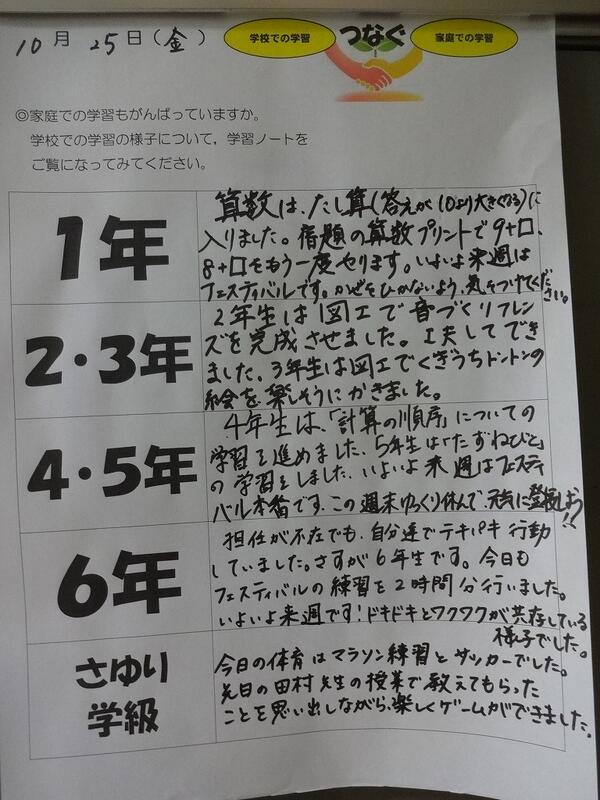 10月25日(金)
学校での学習
つなぐ
家庭での学習
◎家庭での学習もがんばっていますか。
学校での学習の様子について,学習ノートを
ご覧になってみてください。
1年
算数は、たし算(答えが10より大きくなる)に
入りました。宿題の算数プリントで9+□、
8+□をもう一度やります。いよいよ来週は
フェスティバルです。かぜをひかないよう、気をつけてくだ
さい。
2・3年
2年生は図工で音づくりフレン
ズを完成させました。工夫してでき
ました。3年生は図工でくぎうちトントンの
絵を楽しそうにかきました。
4・5年
4年生は、「計算の順序」についての
学習を進めました。5年生は「たずねびと」
の学習をしました。いよいよ来週はフェスティ
バル本番です。この週末ゆっくり休んで、元気に登校しよう
!!
6年
担任が不在でも、自分達でテキパキ行動
していました。さすが6年生です。今日も
フェスティバルの練習を2時間分行いました。
いよいよ来週です!ドキドキとワクワクが共存している
様子でした。
さゆり
学級
今日の体育はマラソン練習とサッカーでした。
先日の田村先生の授業で教えてもらった
ことを思い出しながら、楽しくゲームができました。